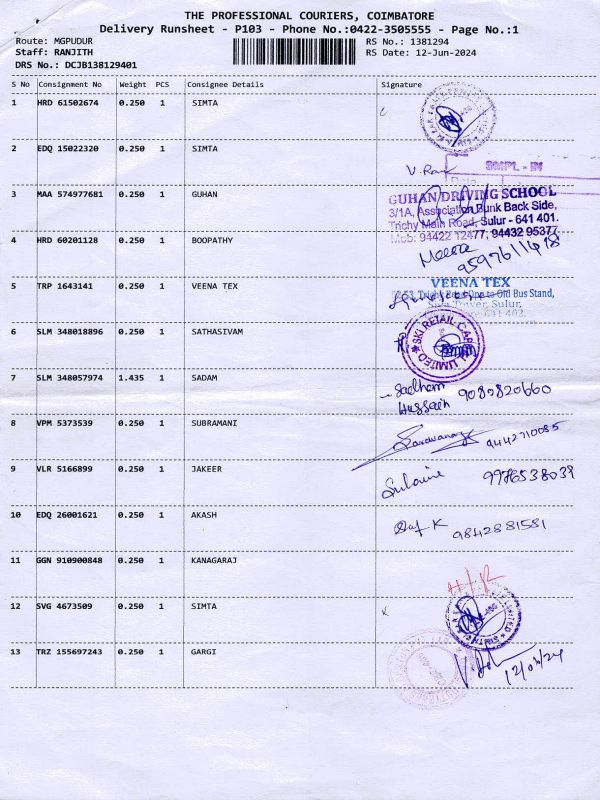 THE PROFESSIONAL COURIERS, COIMBATORE
Delivery Runsheet - P103 - Phone No.:0422-3505555 - Page No.:1
Route: MGPUDUR
RS No.: 1381294
Staff: RANJITH
RS Date: 12-Jun-2024
DRS No.: DCJB138129401
S No Consignment No Weight PCS Consignee Details Signature
1 HRD 61502674 0.250 1 SIMTA
2 EDQ 15022320 0.250 1 SIMTA
SMPL - IN
3 MAA 574977681 0.250 1 GUHAN
GUHAN DRIVING SCHOOL
3/1A, Association Bunk Back Side,
Trichy Main Road, Sulur - 641 401.
Mob: 94422 12477, 94432 95377
4 HRD 60201128 0.250 1 BOOPATHY
Meera
9597611418
5 TRP 1643141 0.250 1 VEENA TEX
VEENA TEX
Old Bus Stand,
Sulur,
641 402.
6 SLM 348018896 0.250 1 SATHASIVAM
SKI RETAIL CAPITAL LIMITED
7 SLM 348057974 1.435 1 SADAM
Sadham
Hussain 9080820660
8 VPM 5373539 0.250 1 SUBRAMANI
9442710085
9 VLR 5166899 0.250 1 JAKEER
9976538039
10 EDQ 26001621 0.250 1 AKASH
9842881581
11 GGN 910900848 0.250 1 KANAGARAJ
12 SVG 4673509 0.250 1 SIMTA
13 TRZ 155697243 0.250 1 GARGI
12/06/24